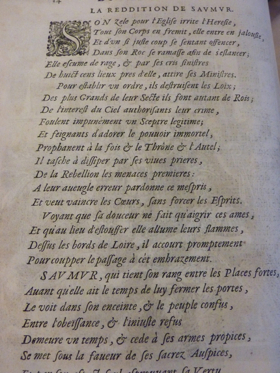 LA REDDITION DE SAVMVR.
SON Zele pour l'Eglise irrite l'Heresie,
Tout son Corps en fremit, elle entre en jalousie,
Et d'vn si juste coup se sentant offencer,
Dans son Ire se ramasse afin de s'eslancer;
Elle escume de rage, & par ses cris sinistres
De huict cens lieux pres d'elle, attire ses Ministres.
Pour establir vn ordre, ils destruisent les Loix;
Des plus Grands de leur Secte ils font autant de Rois;
De l'interest du Ciel authorisans leur crime,
Foulent impunément vn Sceptre legitime;
Et feignans d'adorer le pouuoir immortel,
Prophanent à la fois & le Throsne & l'Autel;
Il tasche à dissiper par ses viues prieres,
De la Rebellion les menaces premieres:
A leur aueugle erreur pardonne ce mespris,
Et veut vaincre les Cœurs, sans forcer les Esprits.
Voyant que sa douceur ne fait qu'aigrir ces ames,
Et qu'au lieu d'estouffer elle allume leurs flammes,
Dessus les bords de Loire, il accourt promptement
Pour coupper le passage à cét embrazement.
SAVMVR, qui tient son rang entre les Places fortes,
Auant qu'elle ait le temps de luy fermer les portes,
Le voit dans son enceinte, & le peuple confus,
Entre l'obeissance, & l'iniuste refus
Demeure vn temps, & cede à ses armes propices,
Se met sous la faueur de ses sacrez Auspices,